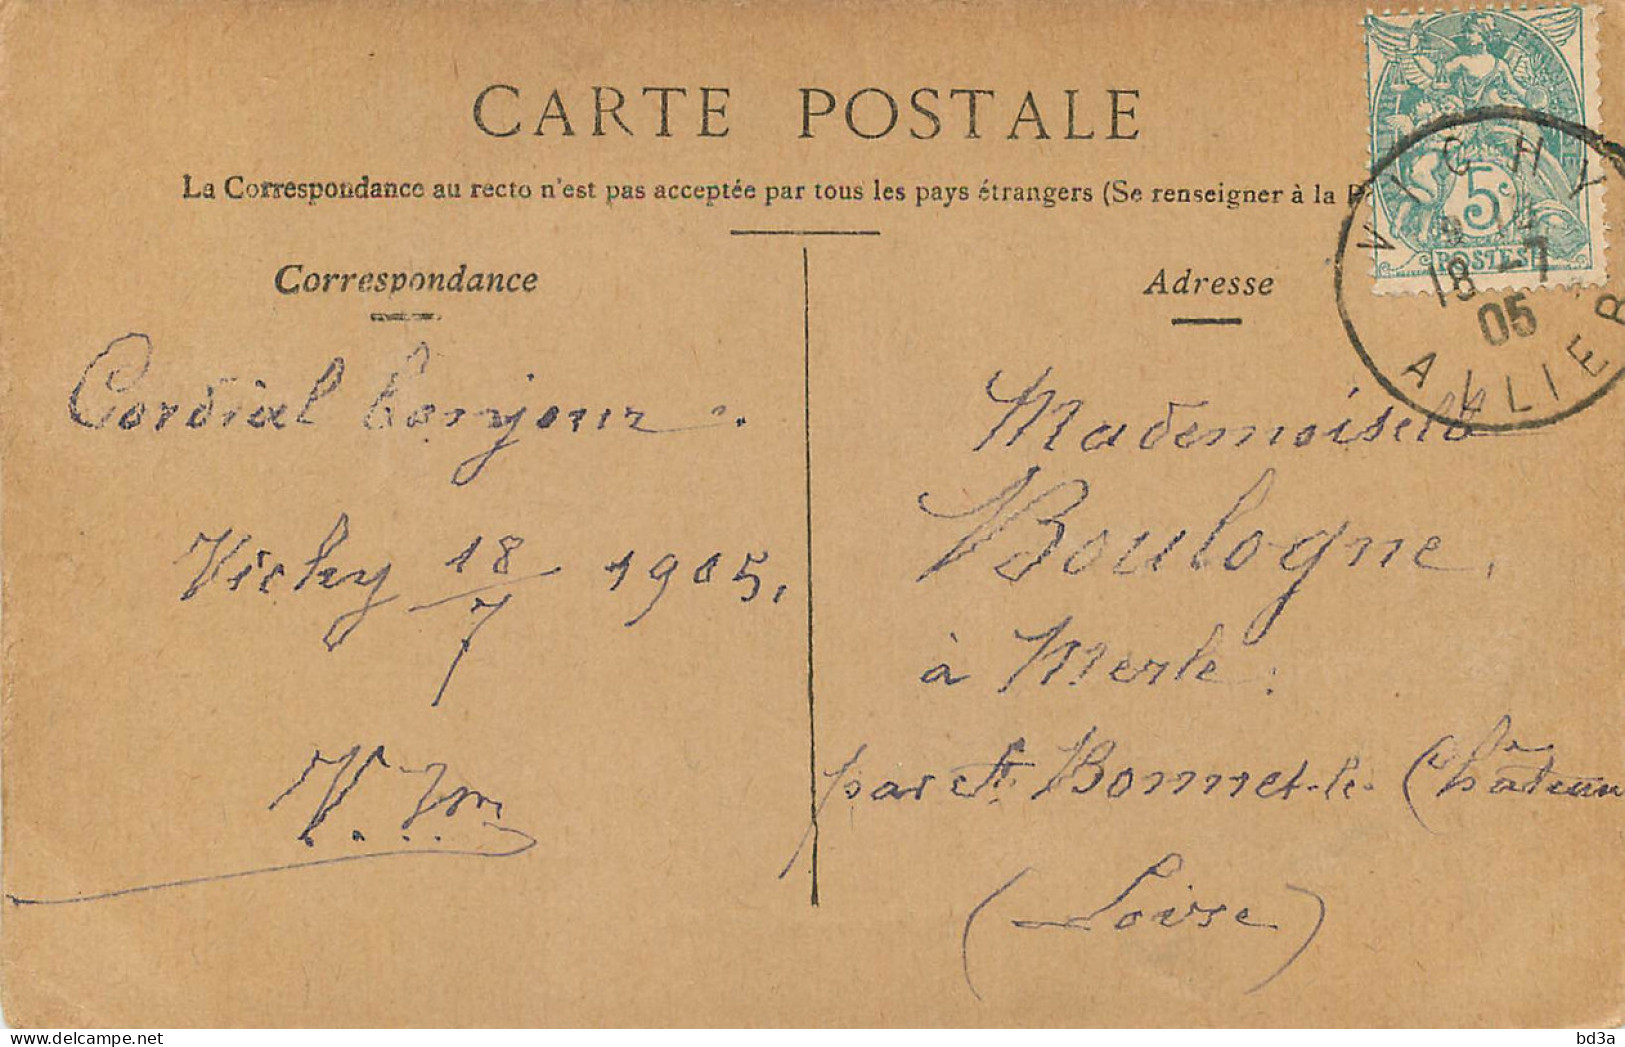 CARTE POSTALE
La Correspondance au recto n'est pas acceptée par tous les pays étrangers (Se renseigner à la P
Correspondance
Cordial bonjour.
Vichy 18/7 1905.
Adresse
Mademoiselle
Boulogne,
à Merle.
par St Bonnet-le-Château
(Loire)
5
POSTES
VICHY
18 -7
05
ALLIER
delcampe.net
bd3a